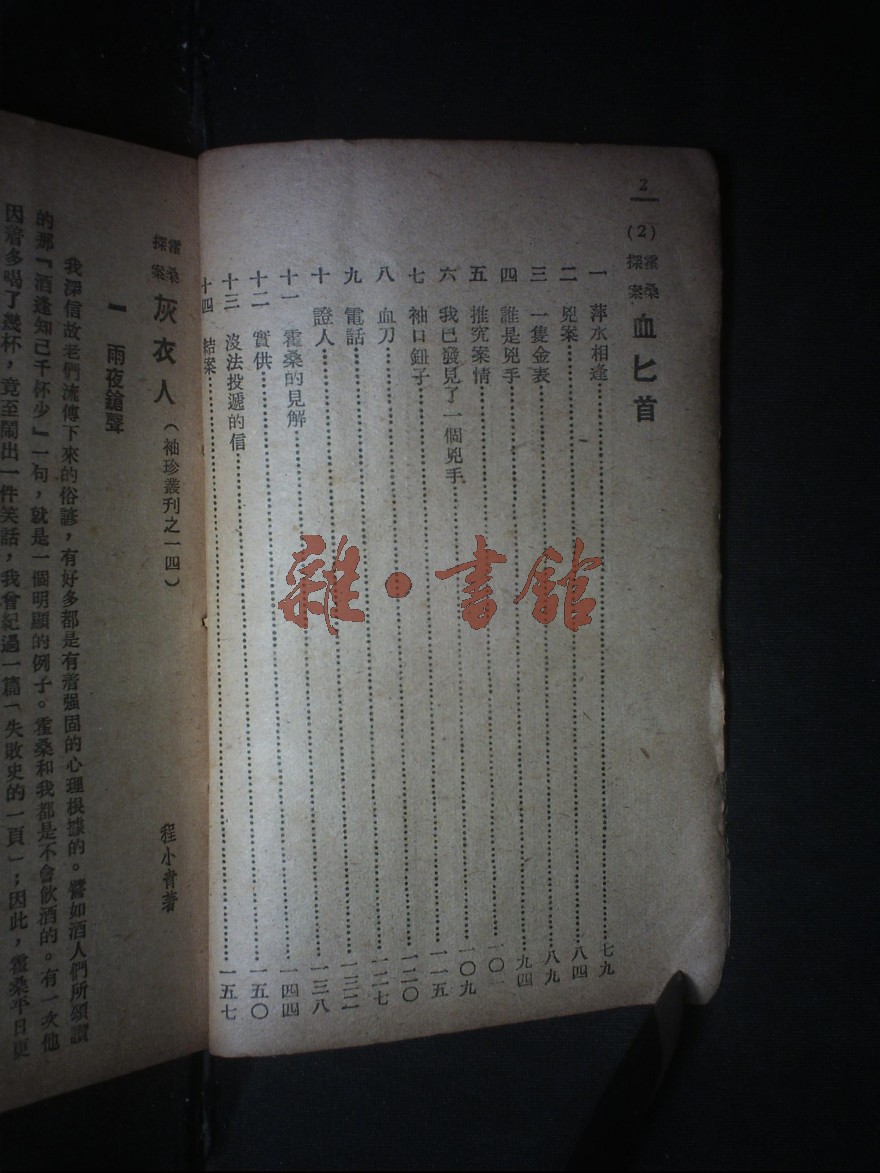 2
(2) 霍桑探案 血匕首
一 萍水相逢……七九
二 兇案……八四
三 一隻金表……八九
四 誰是兇手……九四
五 推究案情……一〇一
六 我已發見了一個兇手……一〇九
七 袖口鈕子……一一五
八 血刀……一二〇
九 電話……一二七
十 證人……一三二
十一 霍桑的見解……一三八
十二 實供……一四四
十三 沒法投遞的信……一五〇
十四 結案……一五七
霍桑探案 灰衣人(袖珍叢刊之一四) 程小青著
一 雨夜鎗聲
我深信故老們流傳下來的俗諺,有好多都是有着强固的心理根據的。譬如酒人們所頌讚
的那「酒逢知己千杯少」一句,就是一個明顯的例子。霍桑和我都是不會飲酒的。有一次他
因着多喝了幾杯,竟至鬧出一件笑話,我曾紀過一篇「失敗史的一頁」;因此,霍桑平日更
雜·書館